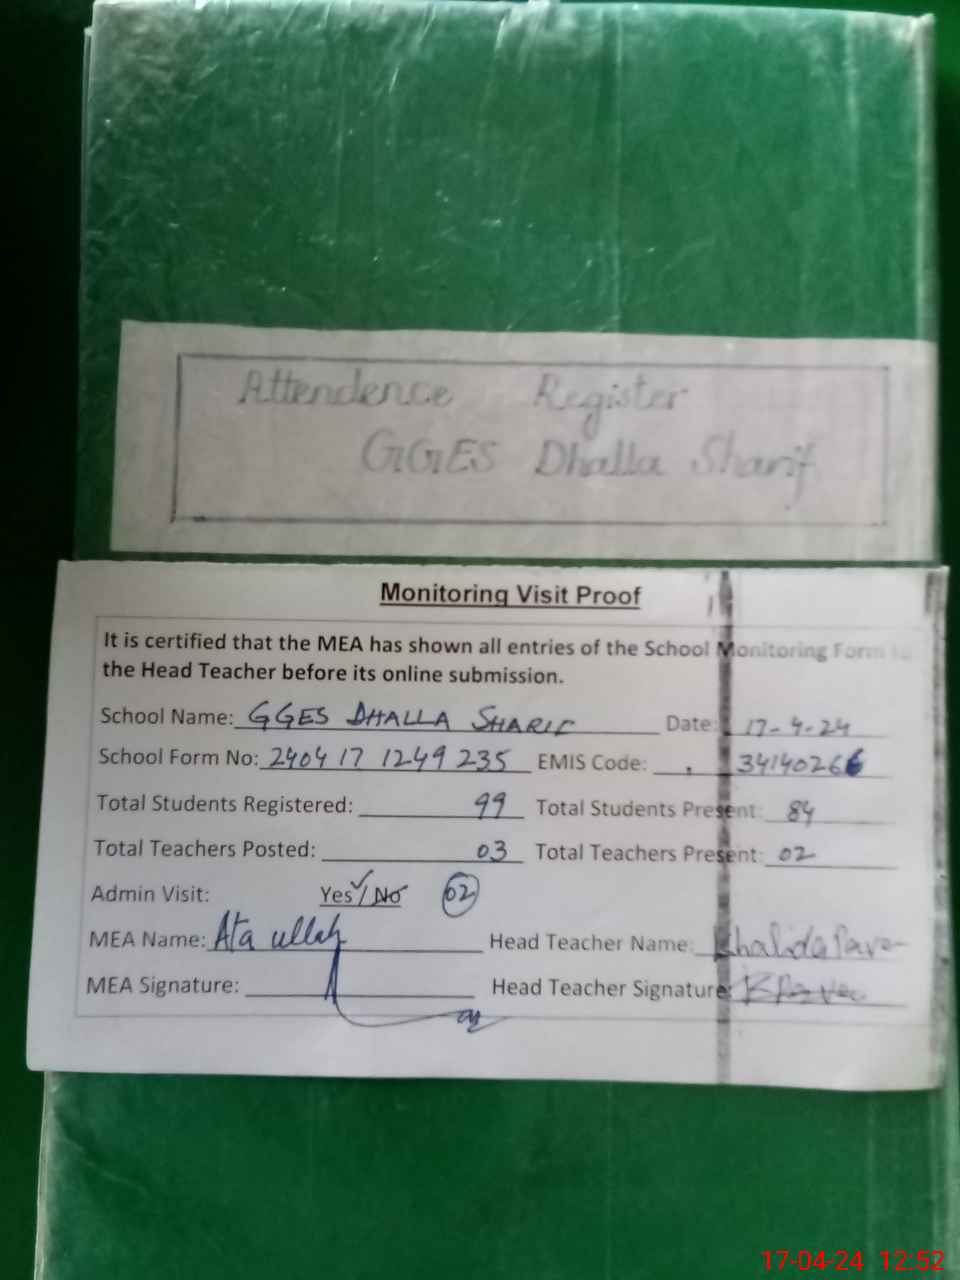 Attendence Register
GGES Dhalla Sharif
Monitoring Visit Proof
It is certified that the MEA has shown all entries of the School Monitoring Form to
the Head Teacher before its online submission.
School Name: GGES DHALLA SHARIF Date: 17-4-24
School Form No: 240417 1249 235 EMIS Code: 34140266
Total Students Registered: 99 Total Students Present: 84
Total Teachers Posted: 03 Total Teachers Present: 02
Admin Visit: Yes✓/ No 02
MEA Name: Ata ullah Head Teacher Name: Khalida
MEA Signature: Head Teacher Signature:
17-04-24 12:52